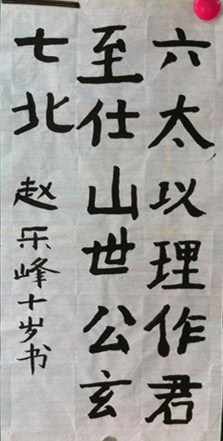 六太以理作君
至仕山世公玄
七北 赵乐峰十岁书